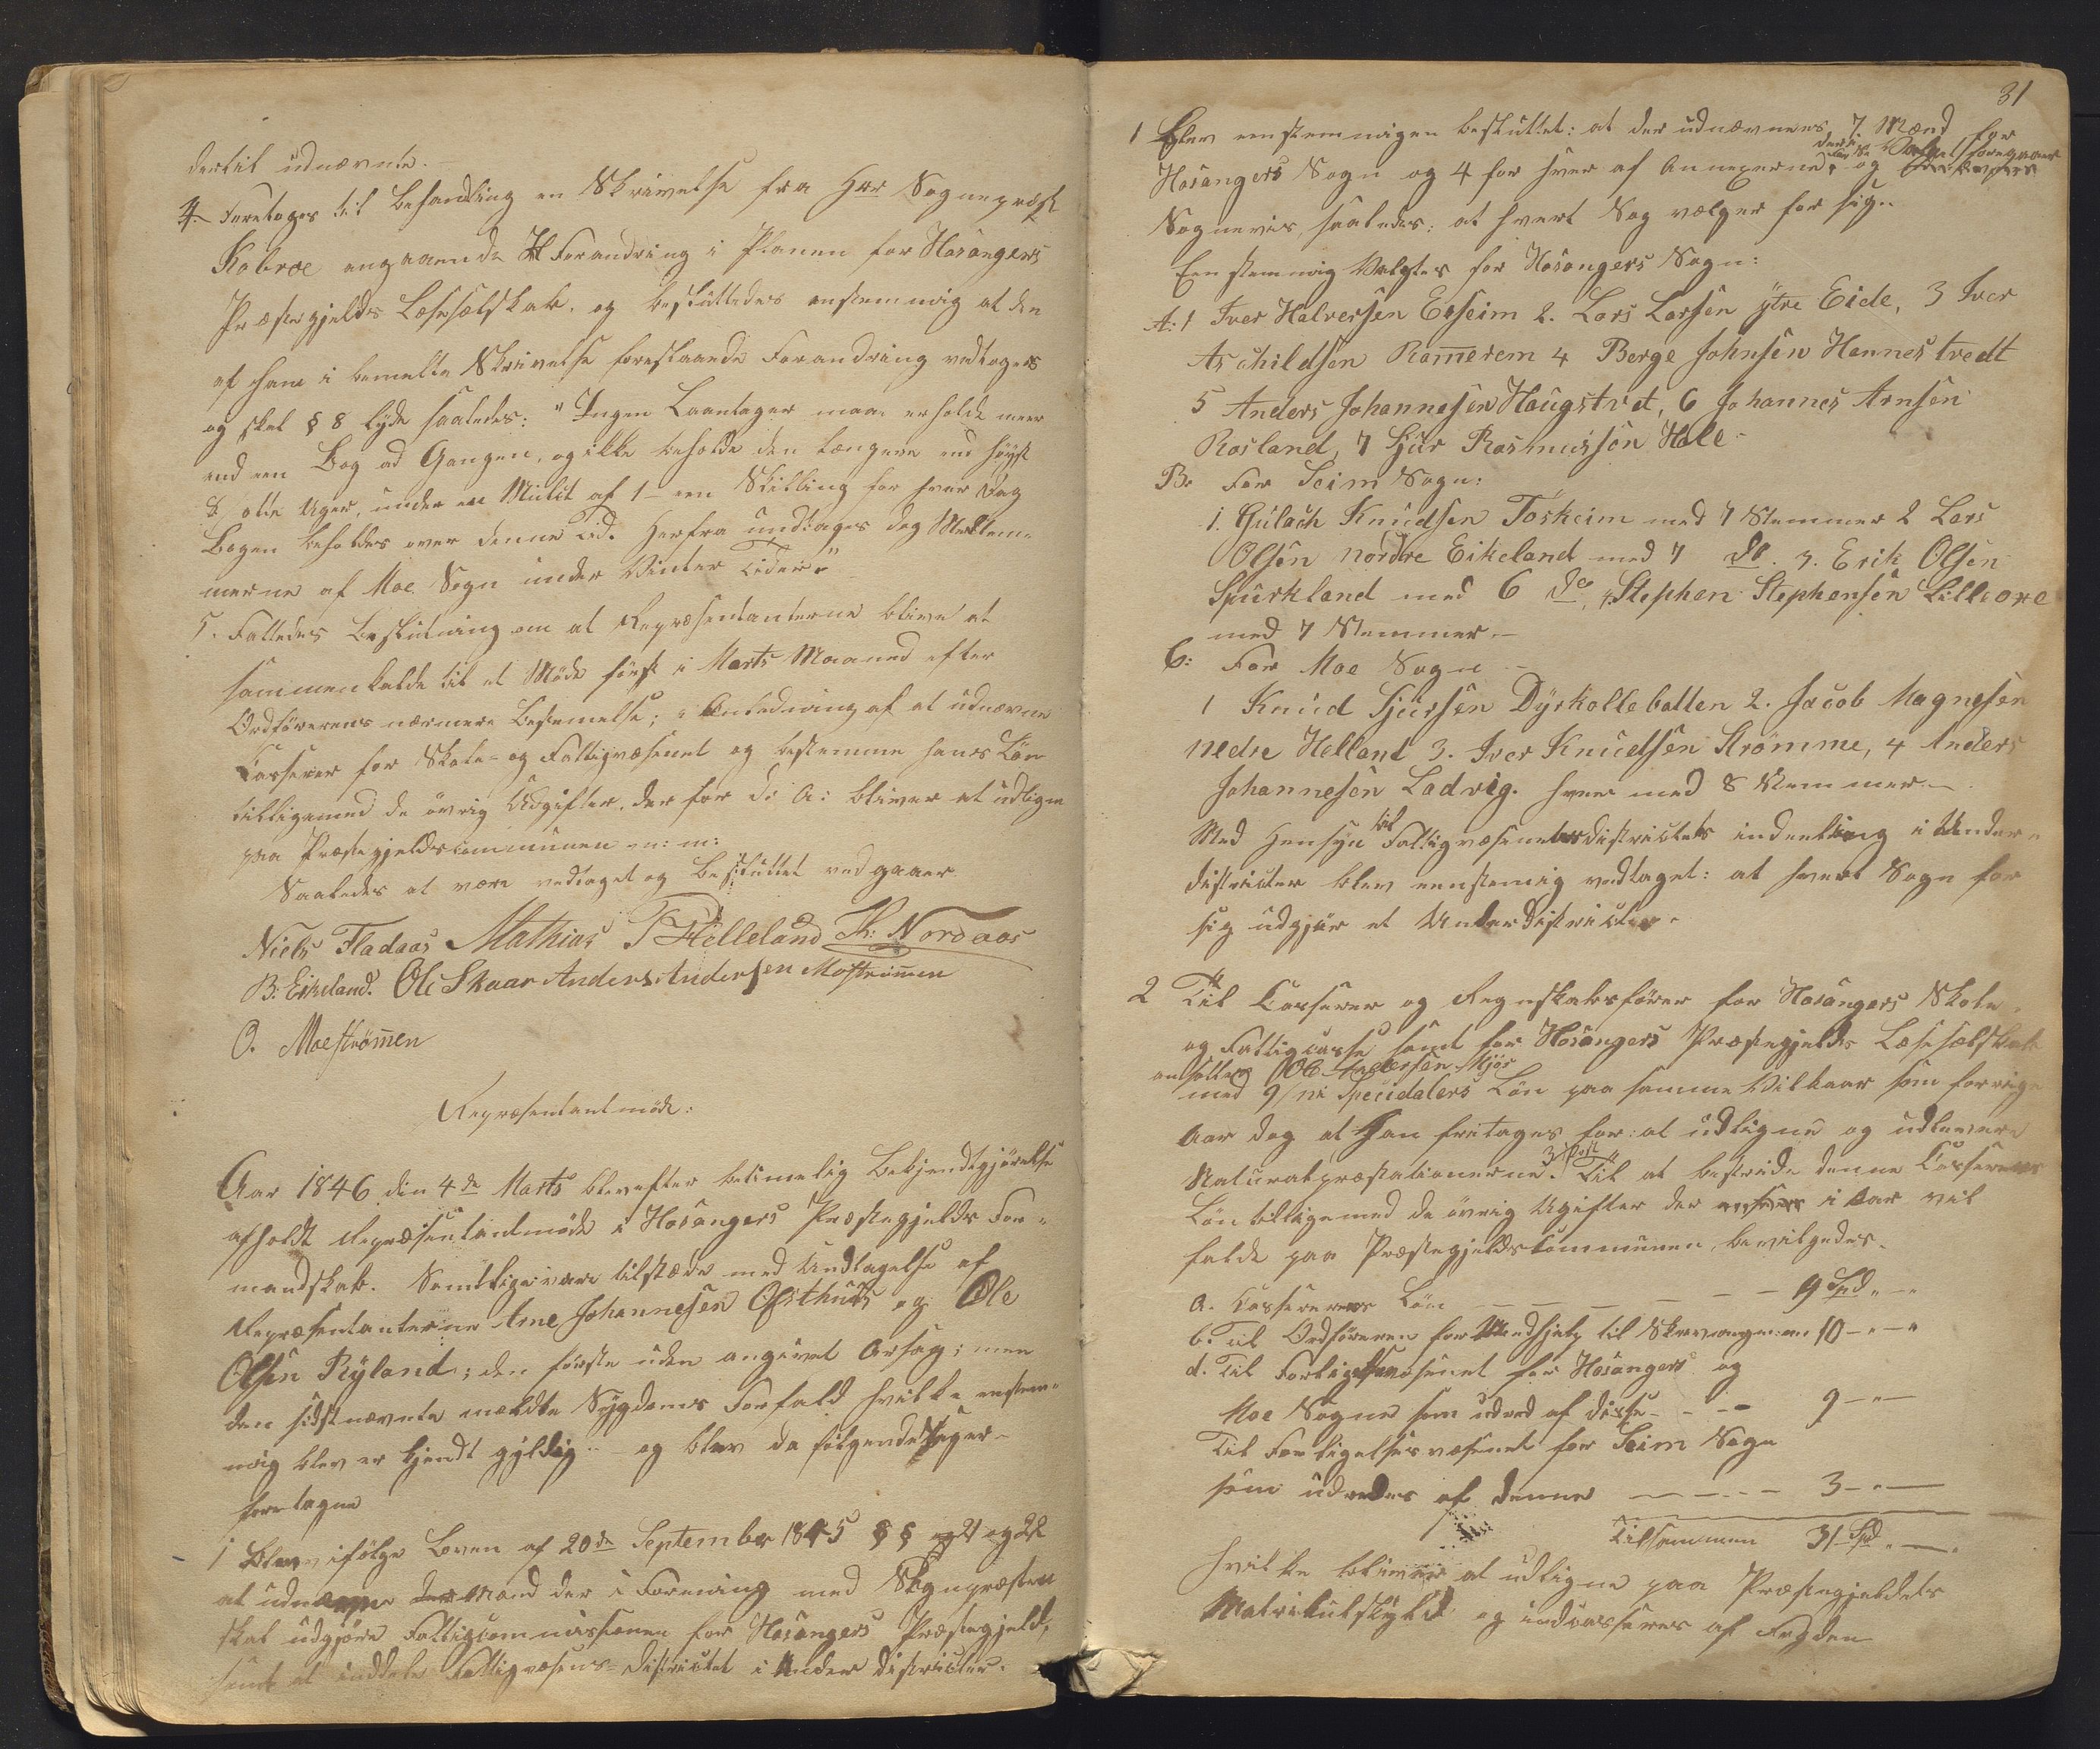 dertil udnævnte.
4. Foretoges til behandling en Skrivelse fra Hrr Sognepræst
Kobroe angaaende Forandring i Planen for Hosangers
Præstegjelds Læseselskab, og besluttedes enstemmig at den
af ham i bemelte Skrivelse foreslaaede Forandring vedtoges
og skal § 8 lyde saaledes: "Ingen Laantager maa erholde meer
end een Bog ad Gangen, og ikke beholde den længere end høyst
8 otte Uger, under en Mulct af 1 - een Skilling for hver Dag
Bogen beholdes over denne Tid. Herfra undtages dog Medlem-
merne af Moe Sogn under Vinter Tider."
5. Fattedes Beslutning om at Repræsentanterne blive at
sammenkalde til et Møde først i Marts Maaned efter
Ordførerens nærmere Bestemelse; i Anledning af at udnævne
Casserer for Skole- og Fattigvæsenet og bestemme hans Løn
tilligemed de øvrig Udgifter, der for d: A: bliver at udligne
paa Præstegjeldscommunen m: m:
Saaledes at være vedtaget og besluttet vedgaaer
Niels Fladaas Mathias T Helleland Th: Nordaas
B: Eikeland. Ole Skaar Anders Andersen Mostrømen
O. Moestrømen
Repræsentantmøde:
Aar 1846 den 4de Marts blev efter betimelig Bekjendtgjørelse
afholdt Repræsentantmøde i Hosangers Præstegjelds For-
mandskab. Samtlige vare tilstæde med Undtagelse af
Repræsentanterne Arne Johannesen Ofsthuus og Ole
Olsen Ryland; den første uden angivet Orsag; men
den sidstnævnte meldte Sygdoms Forfald hvilke enstem-
mig blev erkjendt gyldig - og blev da følgende Sager
foretagne
1 Blev ifølge Loven af 20de September 1845 §§ 21 og 22
at udnævne Mænd der i Forening med Sognepræsten
skal udgjøre Fattigcommissionen for Hosangers Præstegjeld,
samt at inddele Fattigvæsens-Districtet i Under districter.
31
1 Blev eenstemmigen besluttet: at der udnævnes 7. Mænd for
Hosangers Sogn og 4 for hver af Annexerne, og Valget foregaaer
Sognevis, saaledes: at hvert Sogn vælger for sig.
Eenstemmig Valgtes for Hosangers Sogn:
A: 1 Iver Halversen Eeseim 2. Lars Larsen ÿtre Eide, 3 Iver
Aschildsen Romerem 4 Berge Johnsen Hannestvedt
5 Anders Johannesen Haugstvet, 6 Johannes Arnsen
Rosland, 7 Sjur Rasmussen Hole
B. For Seim Sogn:
1. Gulach Knudsen Toskeim med 7 Stemmer 2 Lars
Olsen nordre Eikeland med 7 do. 3. Erik Olsen
Spurkland med 6 do, 4 Stephen Stephensen Lilleore
med 7 Stemmer.-
C: For Moe Sogn -
1 Knud Sjursen Dyrkollebotten 2. Jacob Magnesen
nedre Helland 3. Iver Knudsen Strømme, 4 Anders
Johannesen Ladvig. hver med 8 Stemmer.-
Med Hensyn til Fattigvæsenets districtets inddeling i Under-
districter blev eenstemig vedtaget: at hvert Sogn for
sig udgjør et Underdistrict.
2 Til Casserer og Regnskabsfører for Hosangers Skole-
og Fattigcasse samt for Hosangers Præstegjelds Læseselskab
ansattes Ole Andersen Mjøs
med 9/ni Speciedalers Løn paa samme Vilkaar som forrige
Aar dog at Han fritages for: at udligne og udlevere
Naturalpræstationerne. 3 Til at bestride denne Casserers
Løn tilligemed de øvrig Ugifter der i Aar vil
falde paa Præstegjeldscommunen, bevilgedes.
a. Cassererens Løn - - - - - - 9 Spd. " -
b. Til Ordføreren for Medhjelp til Skrivning m: m: 10 - " - "
d. Til Forligelsesvæsenet for Hosangers og
Moe Sogne som udred af disse - - - 9 - " -
Til Forligelsesvæsenet for Seim Sogn
som udredes af denne - - - - 3 - " -
Tilsammen 31 Spd. " -
hvilke bliver at udligne paa Præstegjeldets
Matrikulskyld og indcasseres af Fogden